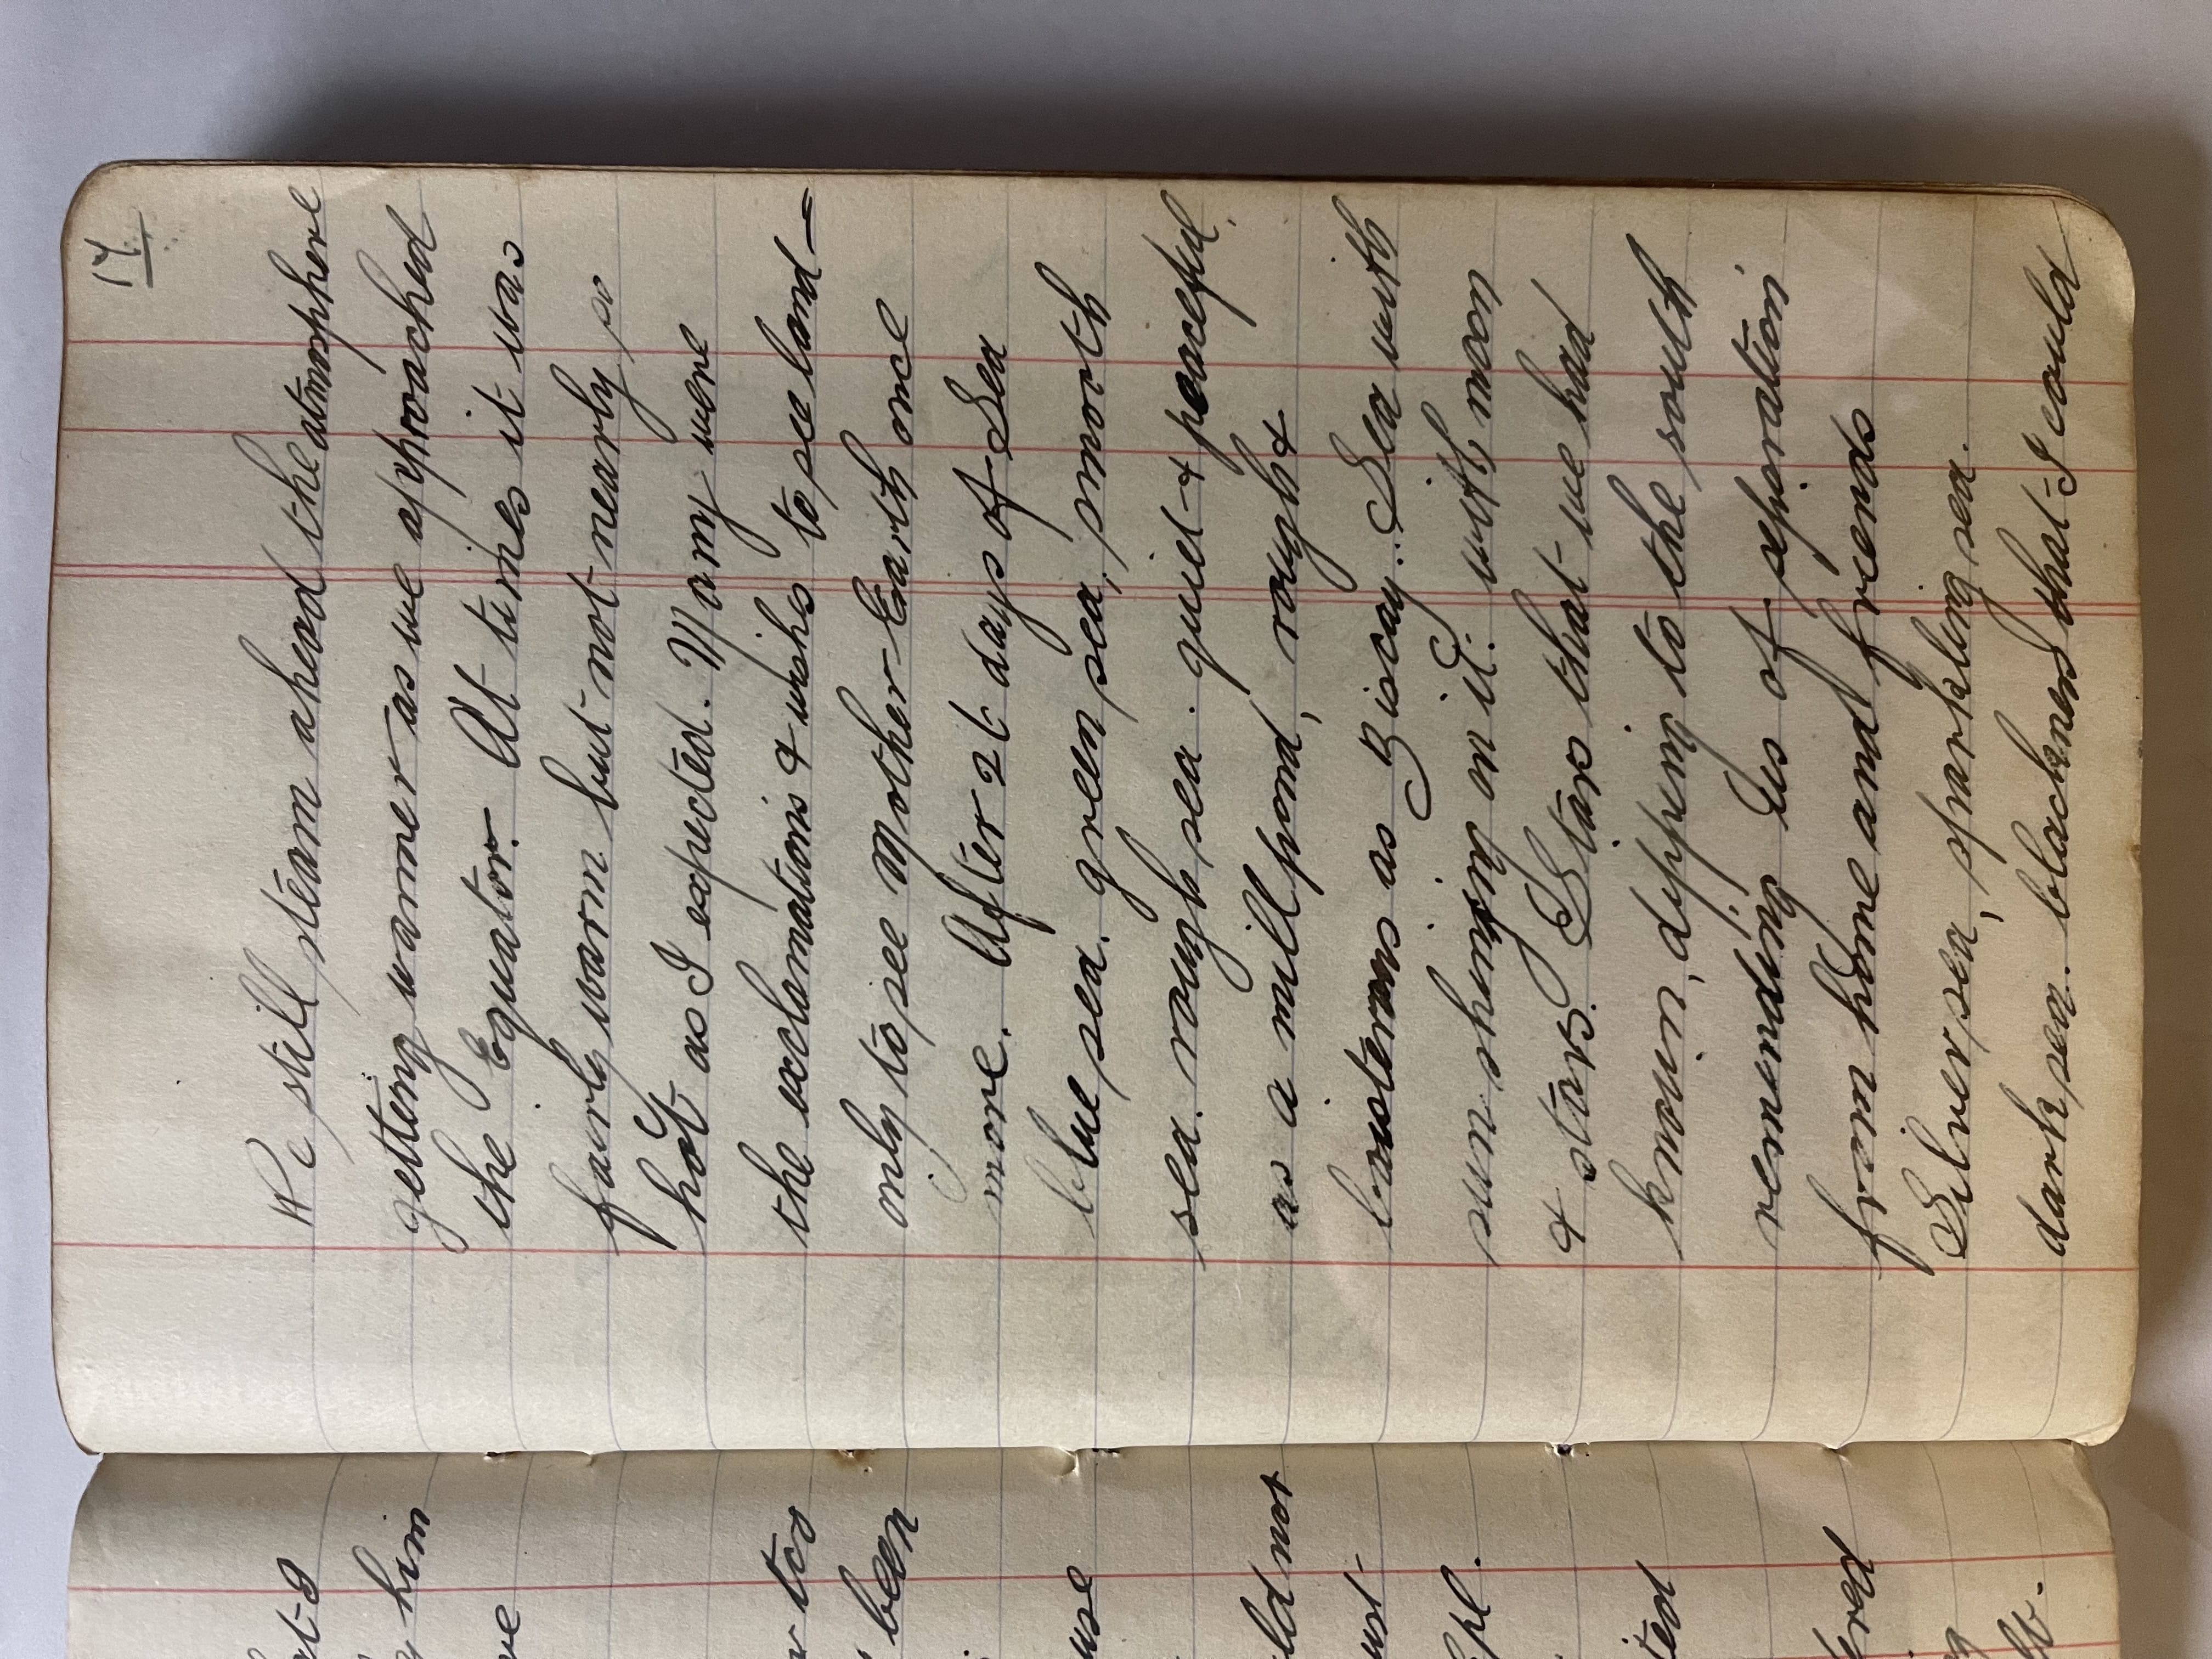 17
We still steam ahead the atmosphere
getting warmer as we approached
the Equator. At times it was
fairly warm but not nearly so
hot as I expected. Many were
the exclamations & wishs to see land -
only to see Mother Earth once
more. After 26 days of Sea
blue sea. green sea, smooth
sea. rough sea. quiet & peaceful,
as a mill pond, rough &
boisterous as Biscay. Sea with
sun shining on it. with moon
& stars. Stars that we had
known, dipping to the south
reminding us of separation
from home and friends
Silver sea, sparkling sea.
dark sea. blackened that I could
him
too
been
use
not